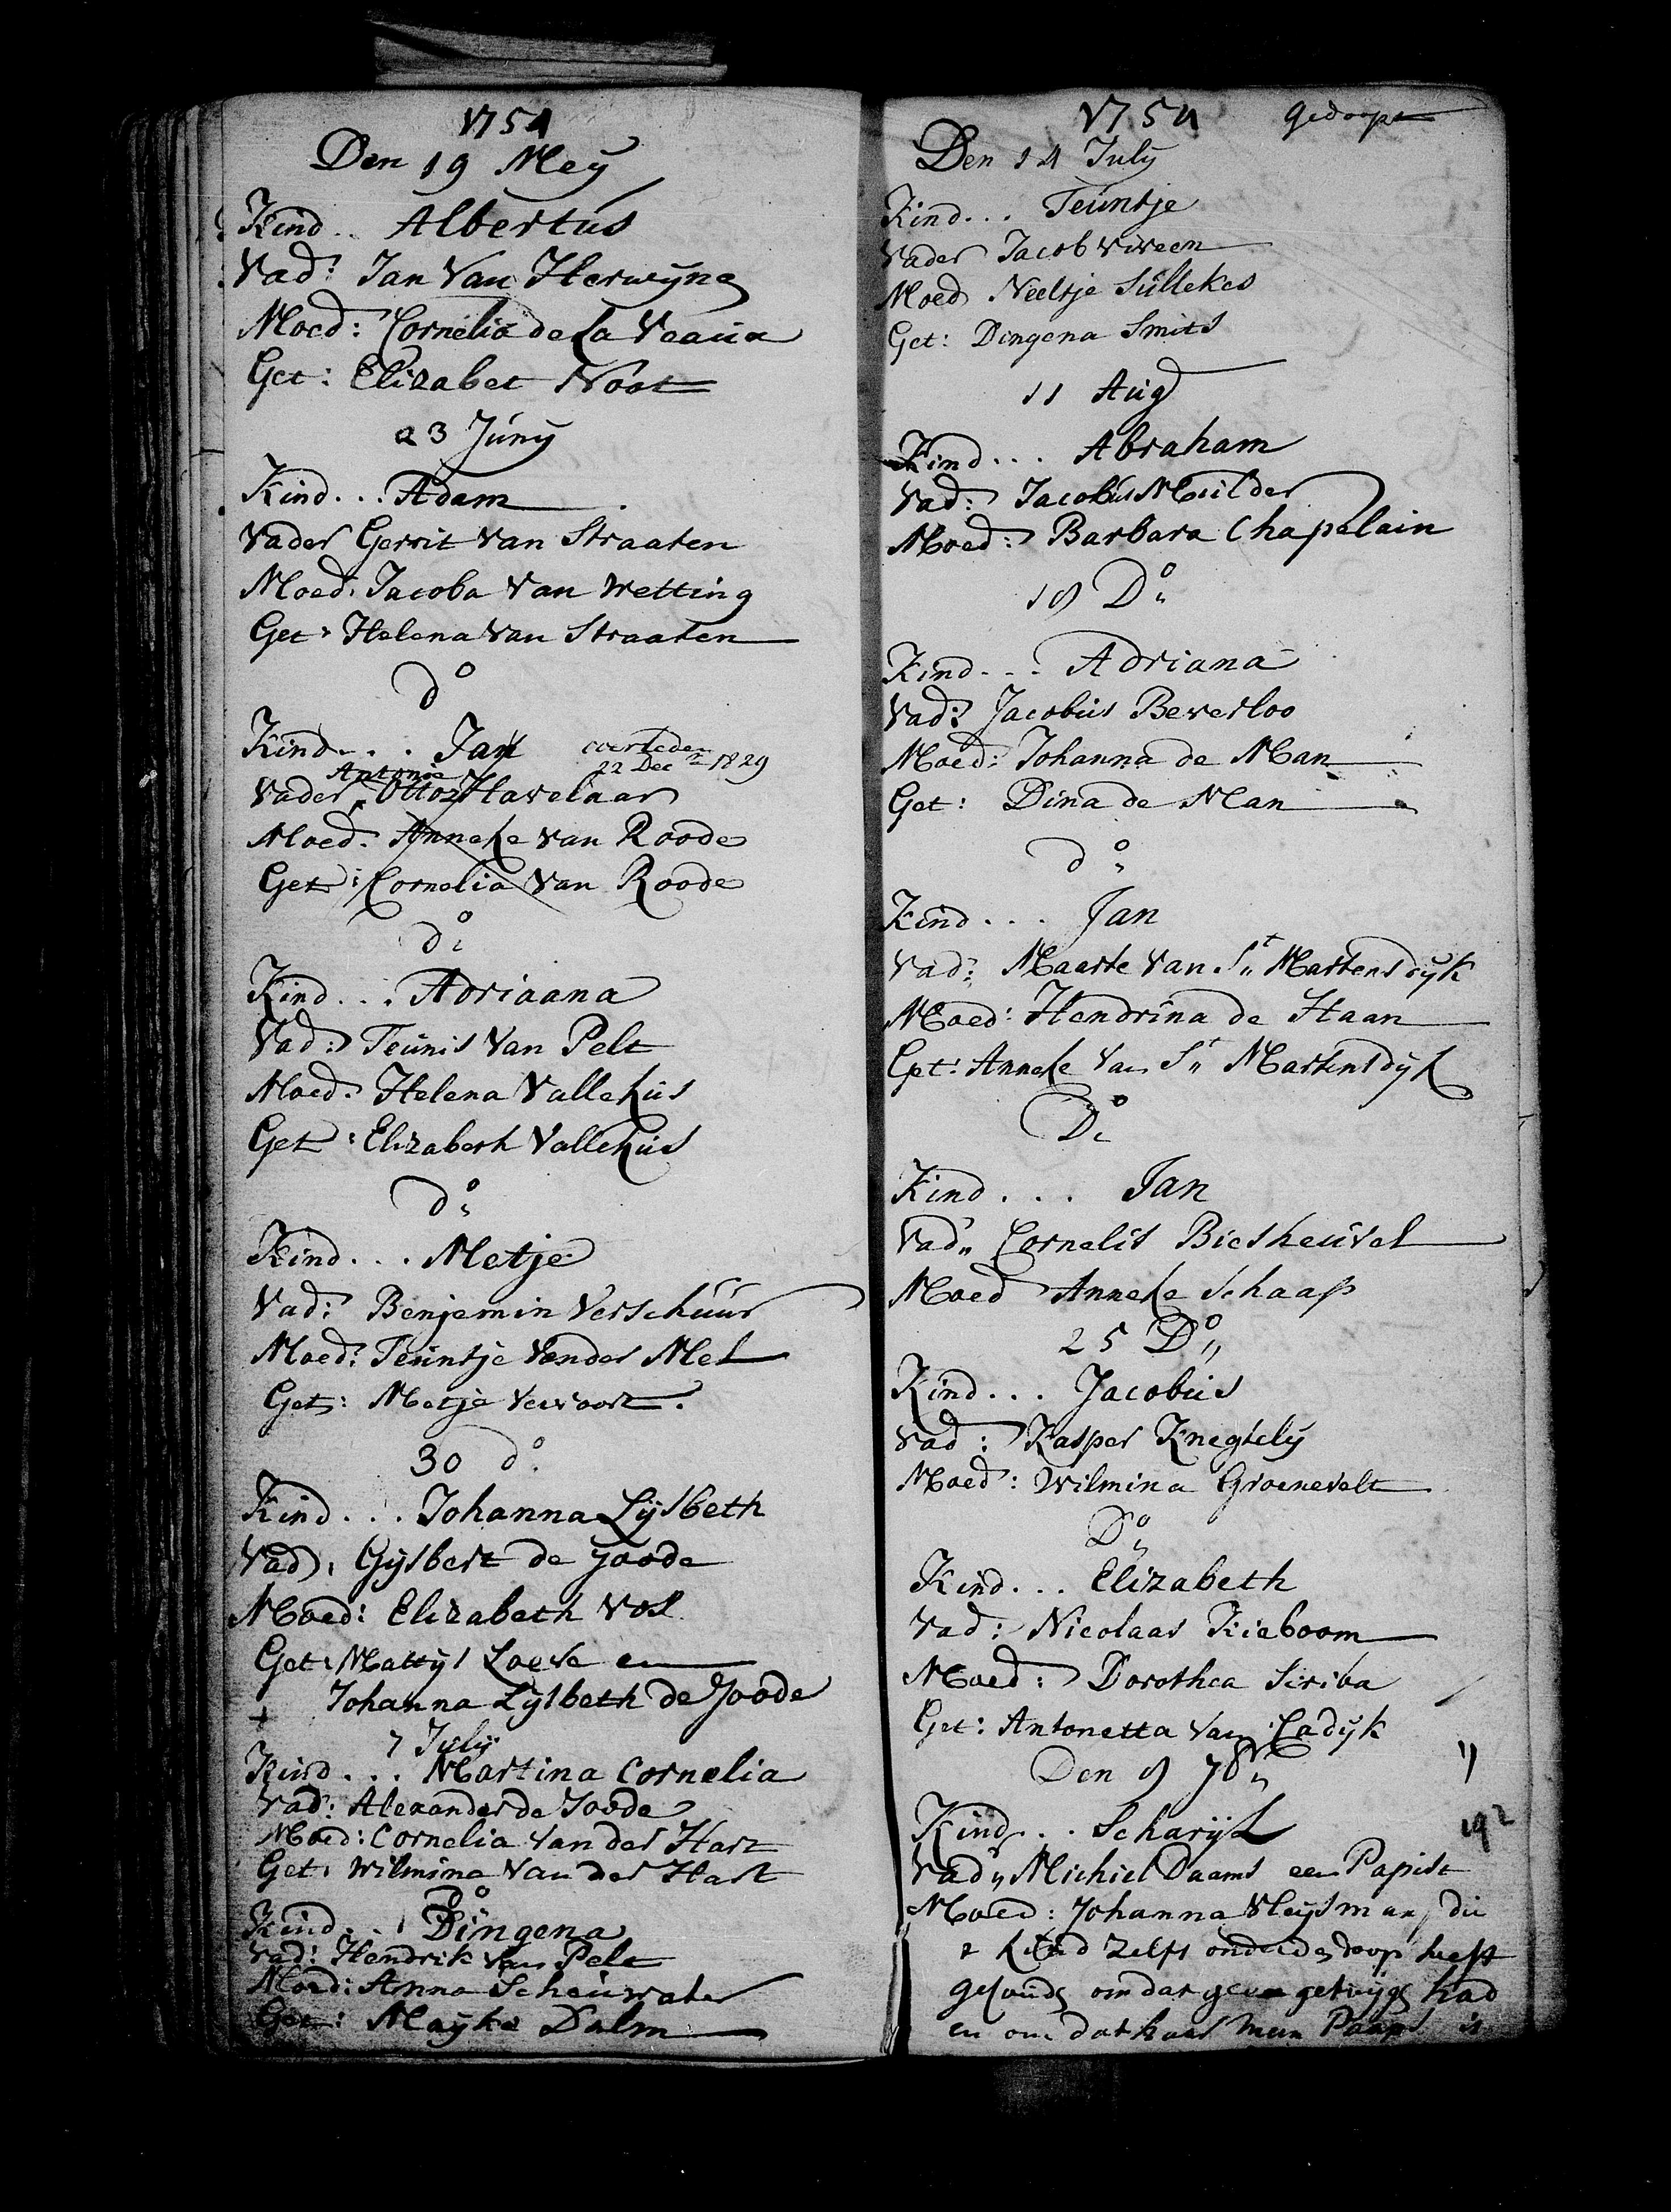 1754
Den 19 Meÿ
Kind .. Albertus
Vad: Jan Van Herwÿne
Moed: Cornelia de la Veaux
Get: Elizabet Noot
23 Junÿ
Kind ... Adam
Vader Gerrit Van Straaten
Moed: Jacoba Van Wetting
Get: Helena Van Straaten
do
Kind ... Jan overleden
22 Dec 1829
Antonie
Vader Ottoz Havelaar
Moed: Anneke Van Roode
Get: Cornelia Van Roode
do
Kind ... Adriaana
Vad: Teunis Van Pelt
Moed: Helena Vallekus
Get: Elizabeth Vallekus
do
Kind ... Metje
Vad: Benjemin Verschuur
Moed: Teuntje Vander Mel
Get: Metje Vervoort.
30 do
Kind ... Johanna Lÿsbeth
Vad: Gÿsbert de Joode
Moed: Elizabeth Vos
Get: Mattÿs en
Johanna Lÿsbeth de Joode
7 Julÿ
Kind ... Martina Cornelia
Vad: Alexander de Joode
Moed: Cornelia Van der Hart
Get: Wilmina Van der Hart
Do
Kind ... Dingena
Vad: Hendrik Van Pelt
Moed: Anna Scheuwater
Get: Maÿke Dalm
1754 Gedoopt
Den 14 Julÿ
Kind ... Teuntje
Vader Jacob Viveen
Moed Neeltje Sullekes
Get: Dingena Smits
11 Aug
Kind ... Abraham
Vad: Jacobus Muilder
Moed: Barbara Chapelain
18 Do
Kind ... Adriana
Vad: Jacobus Beverloo
Moed: Johanna de Man
Get: Dina de Man
do
Kind ... Jan
Vad: Maarte Van St Martensdÿk
Moed: Hendrina de Haan
Get: Anneke Van St Martensdÿk
Do
Kind ... Jan
Vad" Cornelis Biesheuvel
Moed Anneke Schaap
25 Do
Kind ... Jacobus
Vad: Kasper Knegtelÿ
Moed: Wilmina Groenevelt
Do
Kind ... Elizabeth
Vad: Nicolaas Kieboom
Moed: Dorothea Scriba
Get: Antonetta Van Cadÿk
Den 8 7br
Kind ... Scharÿl
192
Vad" Michiel Daams een Papist
Moed: Johanna Vleÿsman die
t kind zelfs onder den doop heeft
om dat geen getuÿge had
en om dat haar man Paaps is